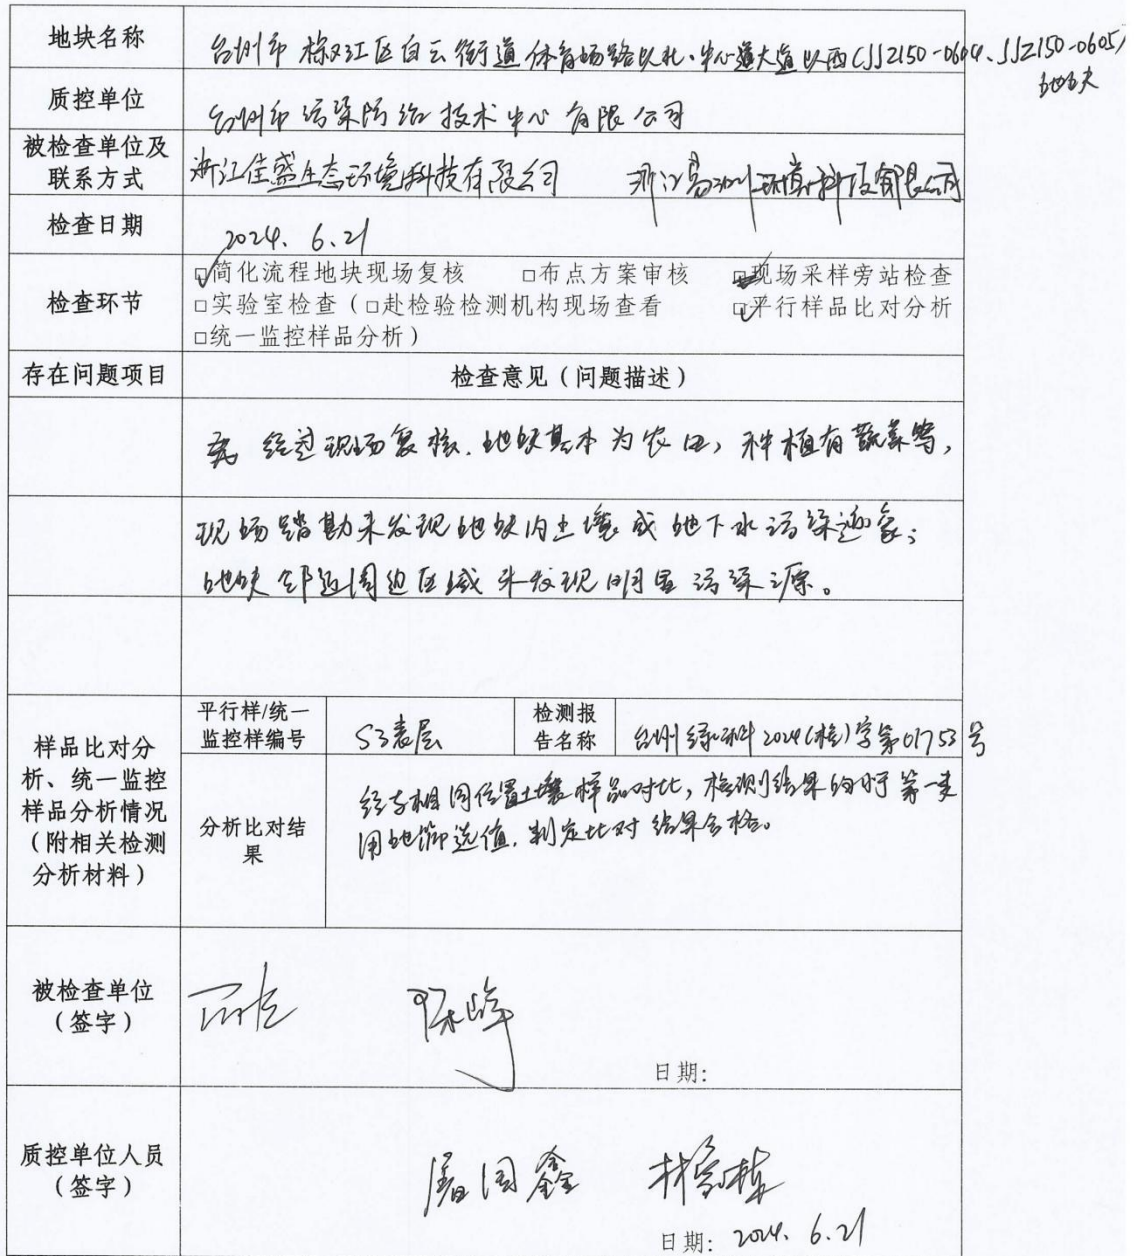 地块名称 台州市椒江区白云街道体育场路以北、中心大道以西(JJZ150-0604、JJZ150-0605)
地块
质控单位 台州市污染防治技术中心有限公司
被检查单位及
联系方式 浙江佳盛生态环境科技有限公司 浙江 环境科技有限公司
检查日期 2024. 6. 21
检查环节
□简化流程地块现场复核 □布点方案审核 □现场采样旁站检查
□实验室检查(□赴检验检测机构现场查看 □平行样品比对分析
□统一监控样品分析)
存在问题项目 检查意见(问题描述)
经过现场复核,地块基本为农田,种植有蔬菜等,
现场踏勘未发现地块内土壤或地下水污染迹象;
地块邻近周边区域未发现明显污染源。
样品比对分
析、统一监控
样品分析情况
(附相关检测
分析材料)
平行样/统一
监控样编号 S3表层
检测报
告名称 台州绿科 2024(检)字第01753号
分析比对结
果
经与相同位置土壤样品对比,检测结果均小于第一类
用地筛选值,判定比对结果合格。
被检查单位
(签字)
日期:
质控单位人员
(签字) 屠国鑫 林家栋
日期: 2024. 6. 21